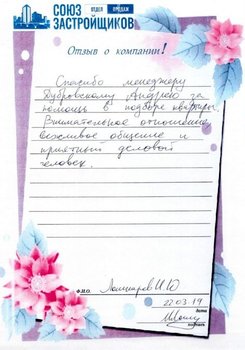 СОЮЗ ОТДЕЛ ПРОДАЖ
ЗАСТРОЙЩИКОВ
Отзыв о компании!
Спасибо менеджеру
Дубровскому Андрею за
помощь в подборе квартиры.
Внимательное отношение
вежливое общение и
приятный деловой
человек.
Ф.И.О. И.Ю
22.03.19
дата
подпись